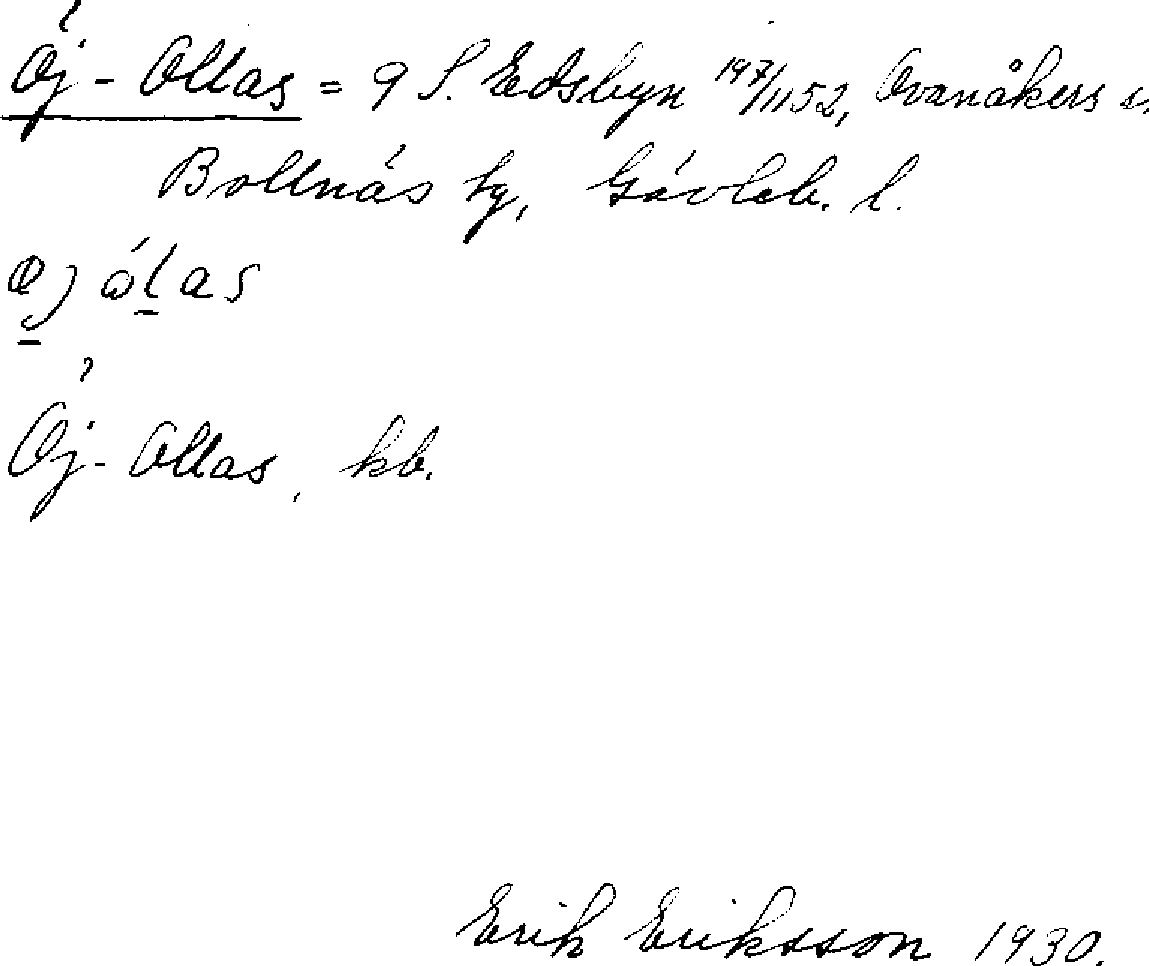 Öj-Ollas = 9 S. Edsbyn 197/1152, Ovanåkers s.
Bollnäs tg, Gävleb. l.
Öj-Ollas, kb.
Erik Eriksson 1930.